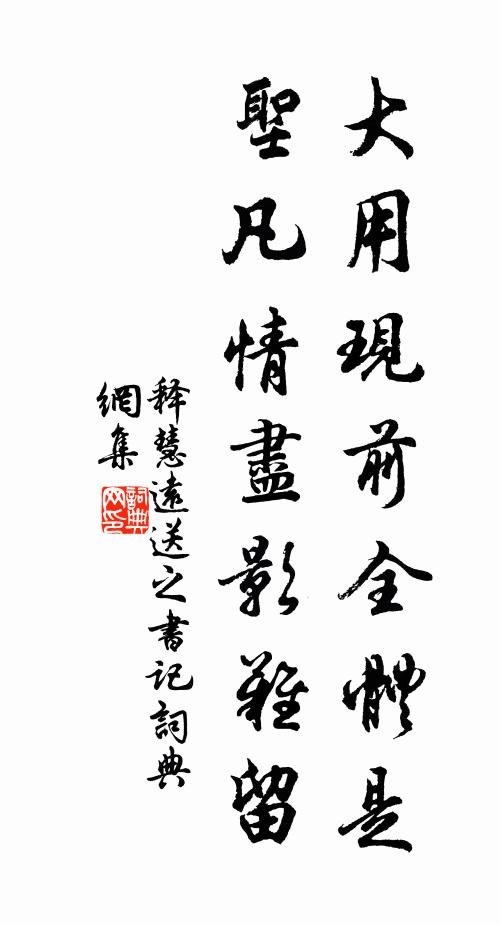 大用現前全體是
聖凡情盡影難留
释慧遠送之書記詞典
網集
詞典
网印